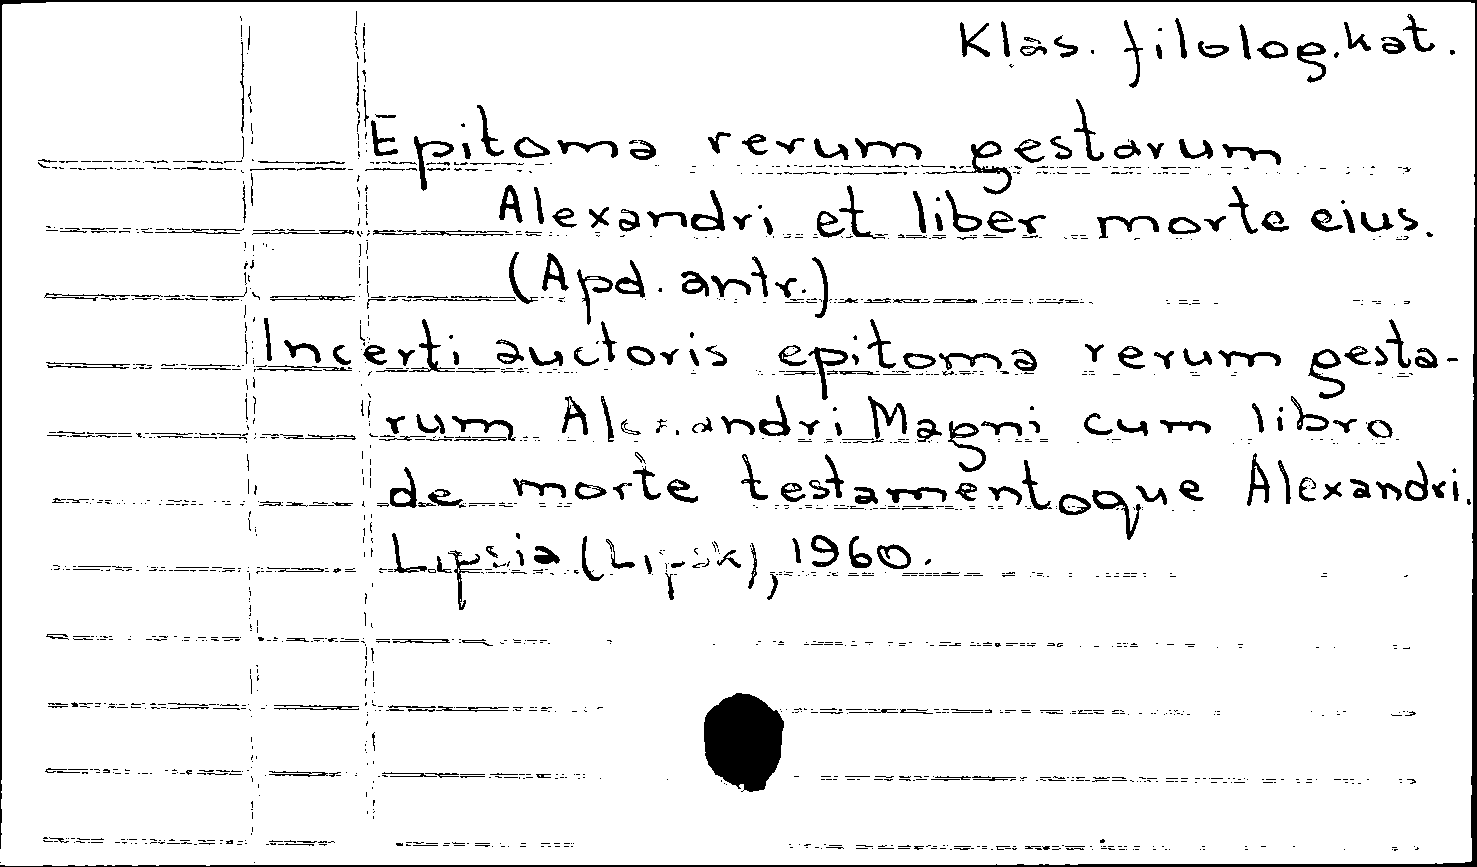 Klas. filolog. kat.
Epitoma rerum gestarum
Alexandri et liber morte eius.
(Apd. antr.)
Incerti auctoris epitoma rerum gesta-
rum Alexandri Magni cum libro
de morte testamentoque Alexandri.
Lipsia (Lipsk), 1960.